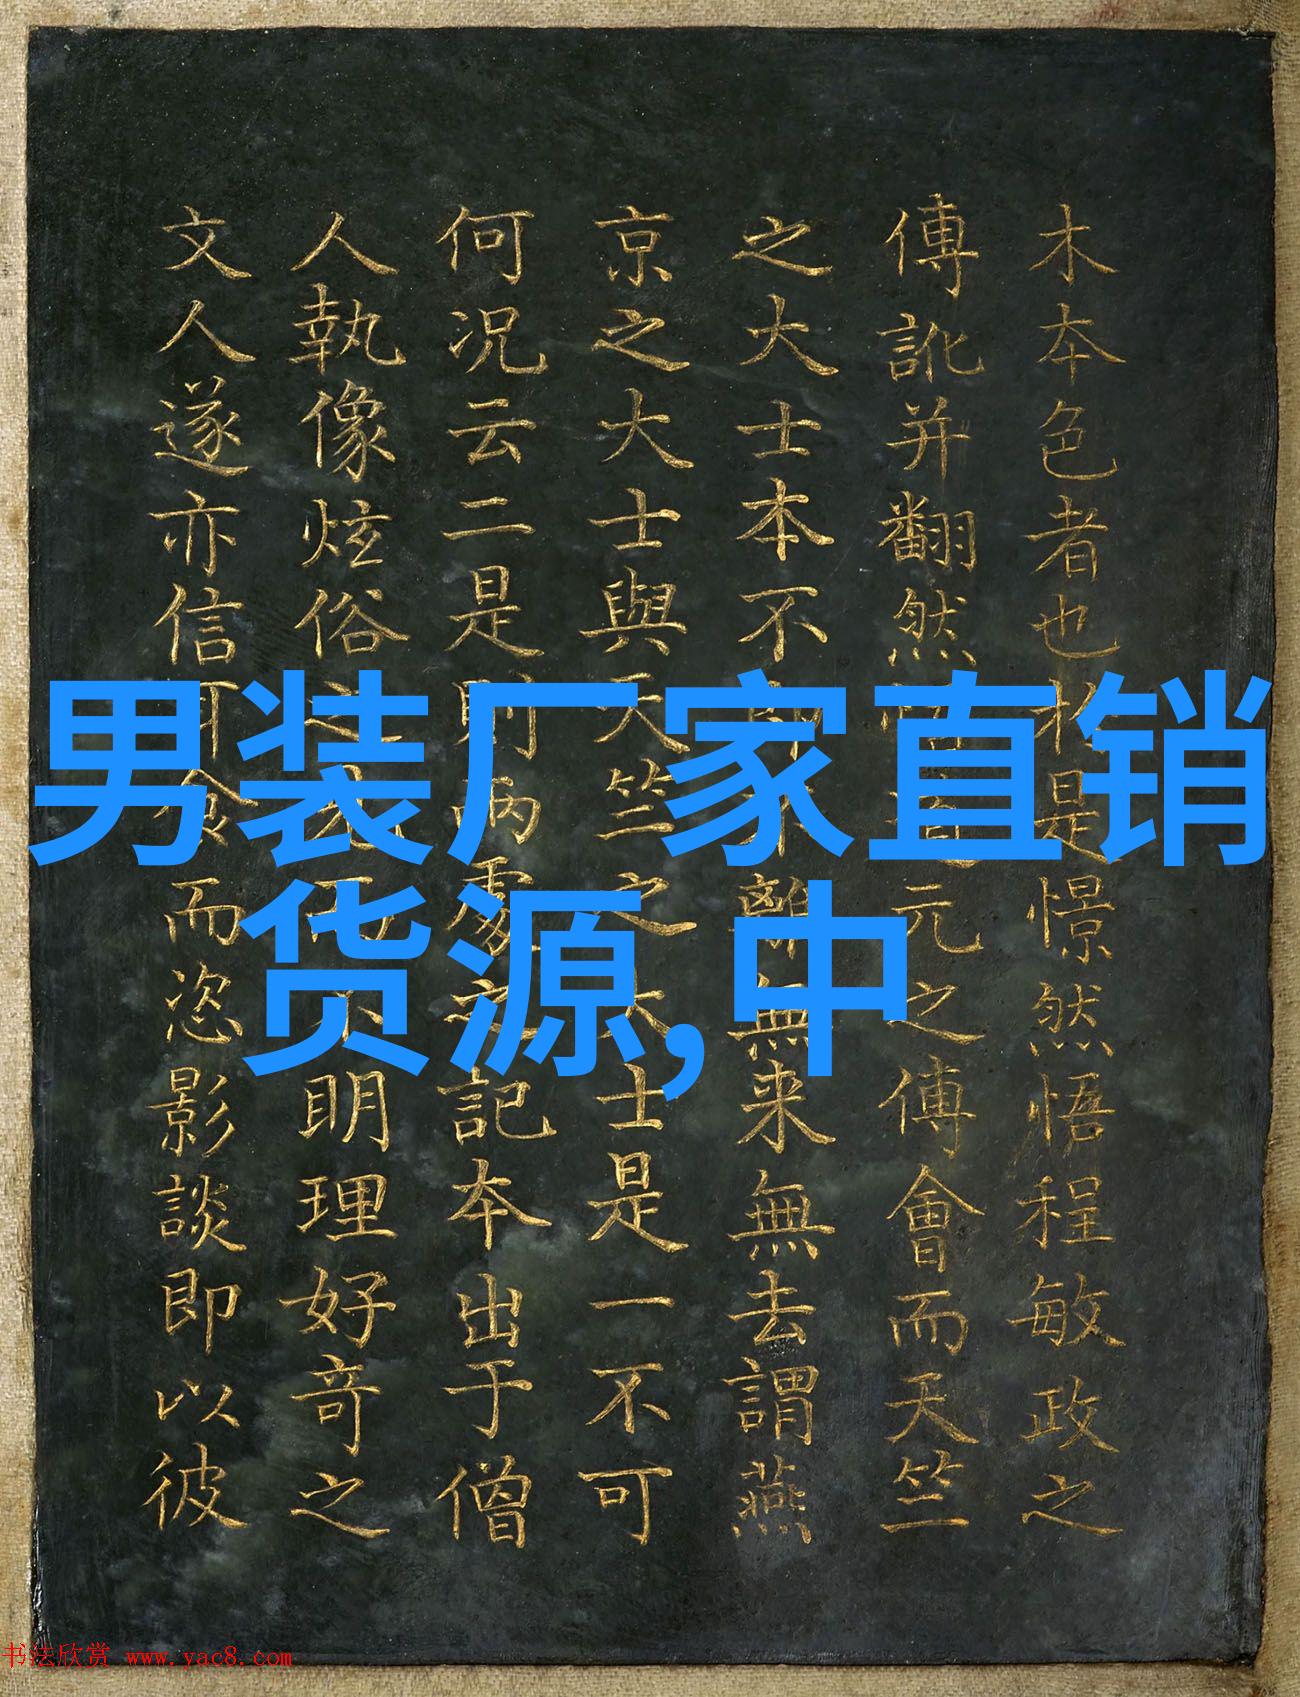 木本色者也扵是憬然悟程敏政之
傳訛并翻然元之傅會而天竺
之大士本不離無来無去謂燕
京之大士與天竺之大士是一不可
何况云二是則兩處之記本出于僧
人執像炫俗之不明理好奇之
文人遂亦信食而恣影談即以彼
男装厂家直销
货源,中
书法欣赏 www.yac8.com